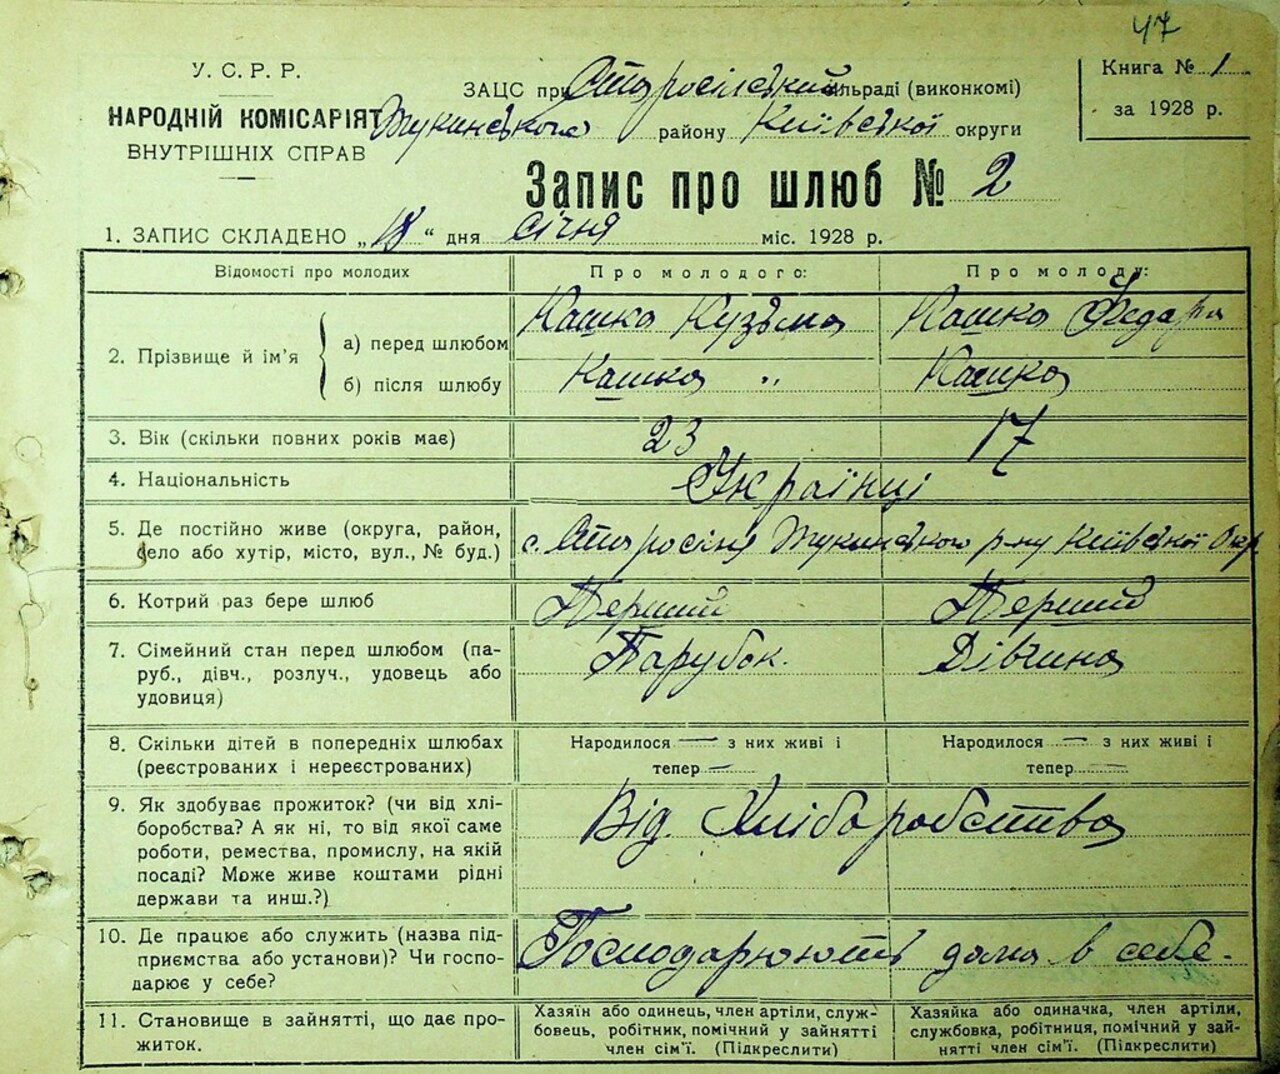 47
У. С. Р. Р.
НАРОДНІЙ КОМІСАРІЯТ
ВНУТРІШНІХ СПРАВ
ЗАЦС при Старосільський сільраді (виконкомі)
району Київської округи
Книга № 1
за 1928 р.
Запис про шлюб № 2
1. ЗАПИС СКЛАДЕНО „18“ дня січня міс. 1928 р.
Відомості про молодих
Про молодого:
Про молоду:
2. Прізвище й ім'я
а) перед шлюбом
Кашка Кузьма
Кашка Федора
б) після шлюбу
Кашка „
Кашка
3. Вік (скільки повних років має)
23
17
4. Національність
Українці
5. Де постійно живе (округа, район,
село або хутір, місто, вул., № буд.)
с. Старосілля р-ну Київської Окр.
6. Котрий раз бере шлюб
Перший
Перший
7. Сімейний стан перед шлюбом (па-
руб., дівч., розлуч., удовець або
удовиця)
Парубок.
Дівчина
8. Скільки дітей в попередніх шлюбах
(реєстрованих і нереєстрованих)
Народилося — з них живі і
тепер —
Народилося — з них живі і
тепер —
9. Як здобуває прожиток? (чи від хлі-
боробства? А як ні, то від якої саме
роботи, ремества, промислу, на якій
посаді? Може живе коштами рідні
держави та инш.?)
Від. Хліборобства
10. Де працює або служить (назва під-
приємства або установи)? Чи госпо-
дарює у себе?
Господарюють дома в себе.
11. Становище в зайнятті, що дає про-
житок.
Хазяїн або одинець, член артіли, служ-
бовець, робітник, помічний у зайнятті
член сім'ї. (Підкреслити)
Хазяйка або одиначка, член артіли,
службовка, робітниця, помічний у зай-
нятті член сім'ї. (Підкреслити)